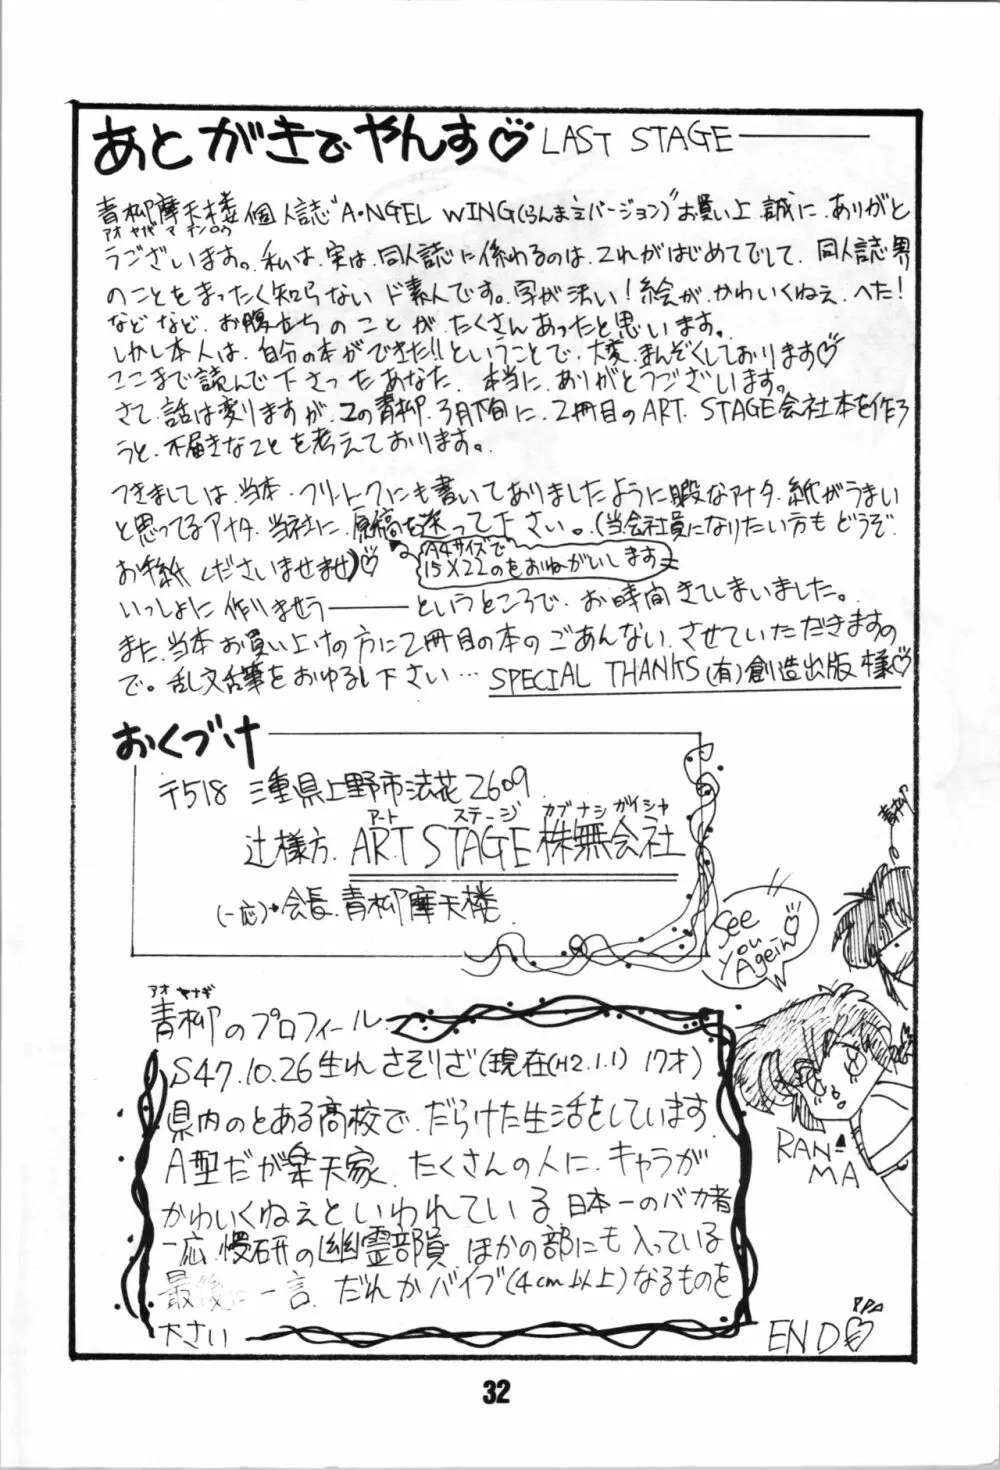 あとがきでやんす♡ LAST STAGE
青柳摩天楼個人誌"A・NGEL WING(らんま½バージョン)"お買い上、誠に、ありがと
アオヤギマテンロウ
うございます。私は、実は、同人誌に係わるのは、これがはじめてでして、同人誌界
のことをまったく知らないド素人です。字が汚い!絵が、かわいくねぇ、へた!
などなど、お腹立ちのことが、たくさんあったと思います。
しかし本人は、自分の本ができた!!ということで、大変、まんぞくしております♡
ここまで読んで下さったあなた、本当に、ありがとうございます。
さて、話は変りますが、この青柳、3月下旬に、2冊目のART. STAGE会社本を作ろ
うと、不届きなことを考えております。
つきましては、当本・フリートークにも書いてありましたように暇なアナタ、絵がうまい
と思ってるアナタ、当社に、原稿を送って下さい。(当会社員になりたい方もどうぞ
A4サイズで
15×22のをおねがいします
お手紙くださいませませ)♡
いっしょに作りませう――というところで、お時間きてしまいました。
また、当本お買い上げの方に2冊目の本のごあんない、させていただきますの
で。乱文乱筆をおゆるし下さい… SPECIAL THANKS (有)創造出版様♡
おくづけ
〒518 三重県上野市法花2609
アート ステージ カブナシガイシャ
辻様方. ART STAGE 株無会社
(一応)会長.青柳摩天楼
青柳
See you Agein♡
RAN-MA
アオヤナギ
青柳のプロフィール
S47.10.26生れ さそりざ(現在(H2.1.1) 17才)
県内のとある高校で、だらけた生活をしています.
A型だが楽天家、たくさんの人に、キャラが
かわいくねぇといわれている日本一のバカ者
一応、慢研の幽霊部員、ほかの部にも入っている
最後に一言、だれかバイブ(4cm以上)なるものを
下さい
END
32